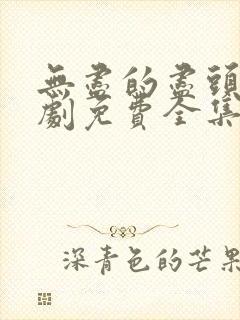 無盡的盡頭
劇免費全集
深青色的芒果